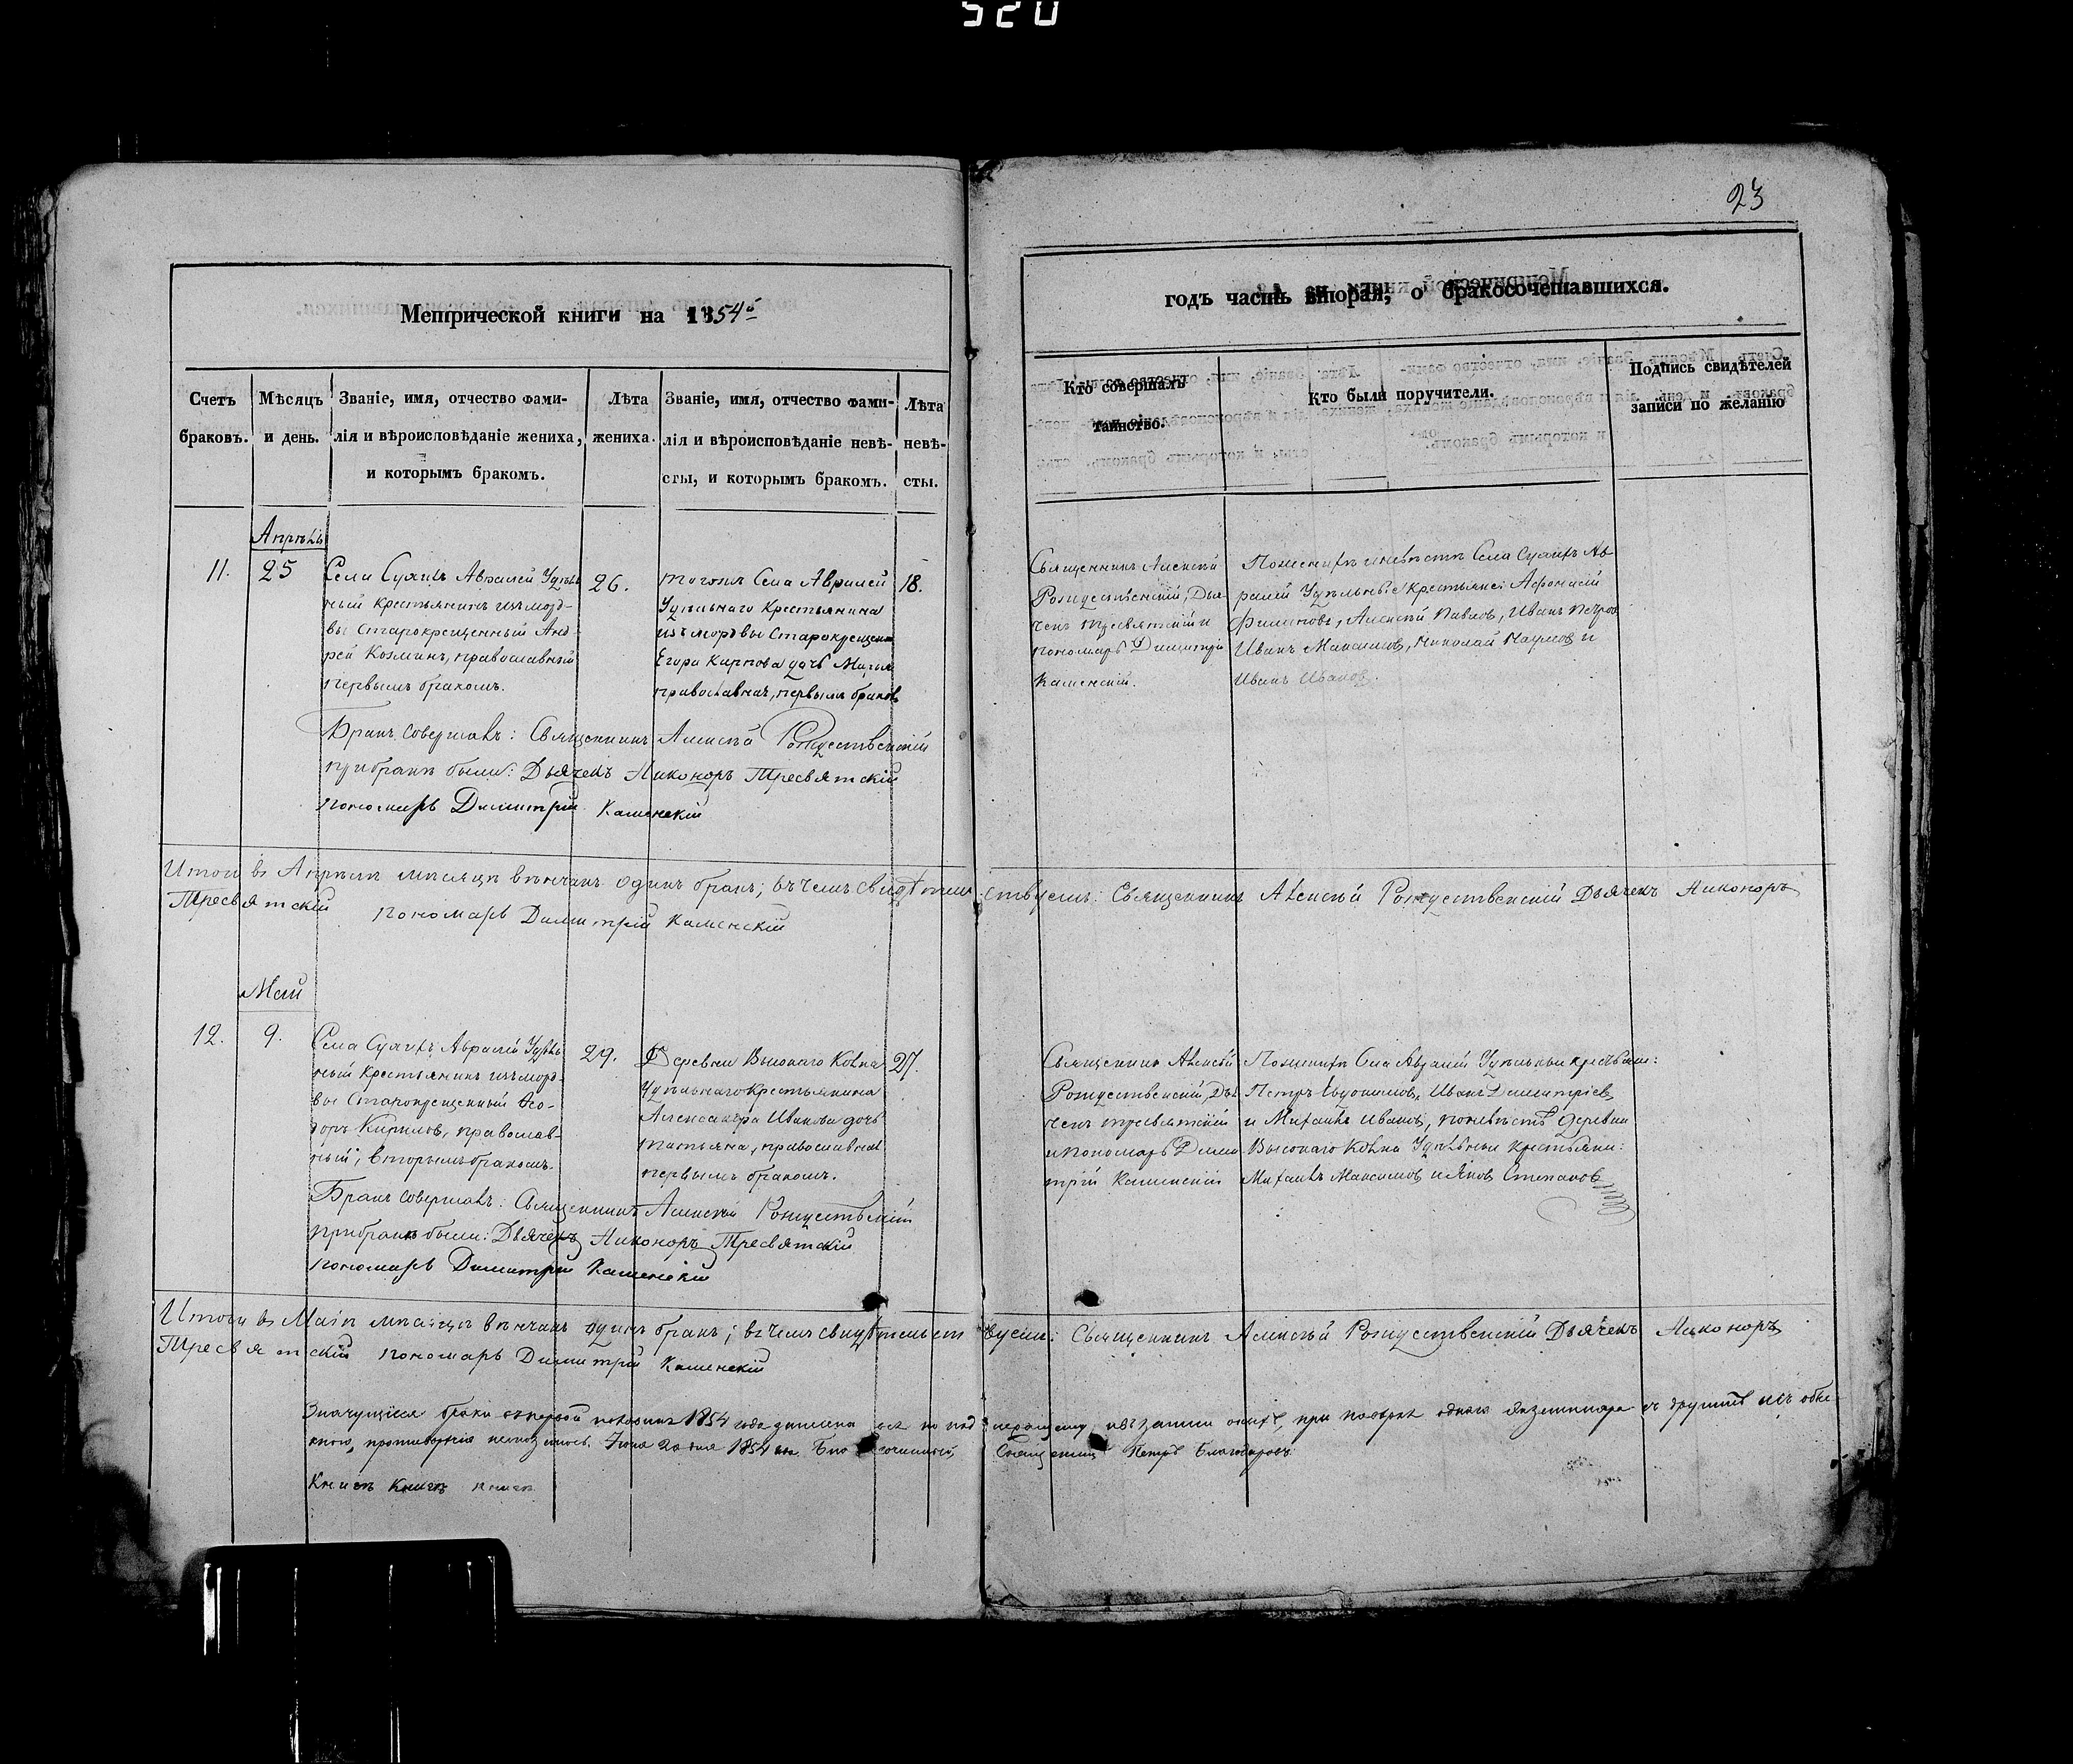 520
23
Метрической книги на 1854й
годъ часть вторая, о бракосочетавшихся.
Счетъ браковъ.
Мѣсяцъ и день.
Званіе, имя, отчество фами-
лія и вѣроисповѣданіе жениха,
и которымъ бракомъ.
Лѣта
жениха.
Званіе, имя, отчество фами-
лія и вѣроисповѣданіе невѣ-
сты, и которымъ бракомъ.
Лѣта
невѣ-
сты.
Кто совершалъ
таинство.
Кто были поручители.
Подпись свидѣтелей
записи по желанію
Апрѣль
11.
25
Села Авралей Удѣль
ный крестьянинъ изъ морд-
вы старокрещенный Анд
рей Козминъ, православный
первымъ бракомъ.
26.
тогожъ Села Авралей
Удѣльнаго крестьянина
изъ мордвы старокрещен
Егора Карпова дочь
православная, первымъ бракомъ
18.
Священникъ Алексѣй
Рождественскій, Дья-
чекъ Тресвятскій и
пономарь Димитрій
Каменскій.
По женихѣ и невѣстѣ Села Ав
ралей Удѣльные крестьяне: Афонасій
Филиповъ, Алексѣй Павловъ, Иванъ Петров
Иванъ Максимовъ, Николай Наумовъ и
Иванъ Ивановъ.
Бракъ совершалъ: Священникъ Алексѣй Рождественскій
при бракѣ были: Дьячекъ Никоноръ Тресвятскій
пономарь Димитрій Каменскій
Итого въ Апрѣлѣ мѣсяцѣ вѣнчанъ одинъ бракъ; въ чемъ свидѣтельствуемъ: Священникъ Алексѣй Рождественскій Дьячекъ Никоноръ
Тресвятскій пономарь Димитрій Каменскій
Май
12.
9.
Села Авралей Удѣль
ный крестьянинъ изъ морд-
вы старокрещенный Ѳео-
доръ Кириловъ, православ-
ный, вторымъ бракомъ.
29.
Деревни Высокаго Колка
Удѣльнаго крестьянина
Александра Иванова дочь
Татьяна, православная
первымъ бракомъ.
27.
Священникъ Алексѣй
Рождественскій, Дья
чекъ Тресвятскій
и пономарь Дими
трій Каменскій
По женихѣ Села Авралей Удѣльные крестьяне:
Петръ Евдокимовъ, Иванъ Димитріев
и Михаилъ Ивановъ, по невѣстѣ деревни
Высокаго Колка Удѣльные крестьяни:
Михаилъ Максимовъ и Яковъ Степановъ
Бракъ совершалъ: Священникъ Алексѣй Рождественскій
при бракѣ были: Дьячекъ Никоноръ Тресвятскій
пономарь Димитрій Каменскій
Итого въ Маіѣ мѣсяцѣ вѣнчанъ одинъ бракъ; въ чемъ свидѣтельствуемъ: Священникъ Алексѣй Рождественскій Дьячекъ Никоноръ
Тресвятскій пономарь Димитрій Каменскій
Значущіеся браки въ первой половинѣ 1854 года при повѣркѣ одного экземпляра съ другимъ
Іюня 20 дня 1854 Благочинный, Священникъ Петръ
книгъ книгъ книгъ